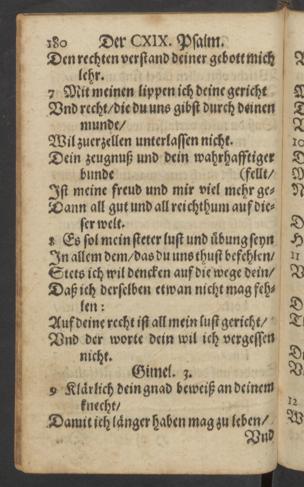 180 Der CXIX. Psalm.
Den rechten verstand deiner gebott mich
lehr.
7 Mit meinen lippen ich deine gericht
Vnd recht/die du uns gibst durch deinen
munde/
Wil zuerzellen unterlassen nicht.
Dein zeugnuß und dein wahrhafftiger
bunde (fellt/
Ist meine freud und mir viel mehr ge-
Dann all gut und all reichthum auf die-
ser welt.
8 Es sol mein steter lust und übung seyn
In allem dem/das du uns thust befehlen/
Stets ich wil dencken auf die wege dein/
Daß ich derselben etwan nicht mag feh-
len:
Auf deine recht ist all mein lust gericht/
Vnd der worte dein wil ich vergessen
nicht.
Gimel. 3.
9 Klärlich dein gnad beweiß an deinem
knecht/
Damit ich länger haben mag zu leben/
Vnd
10
11
12